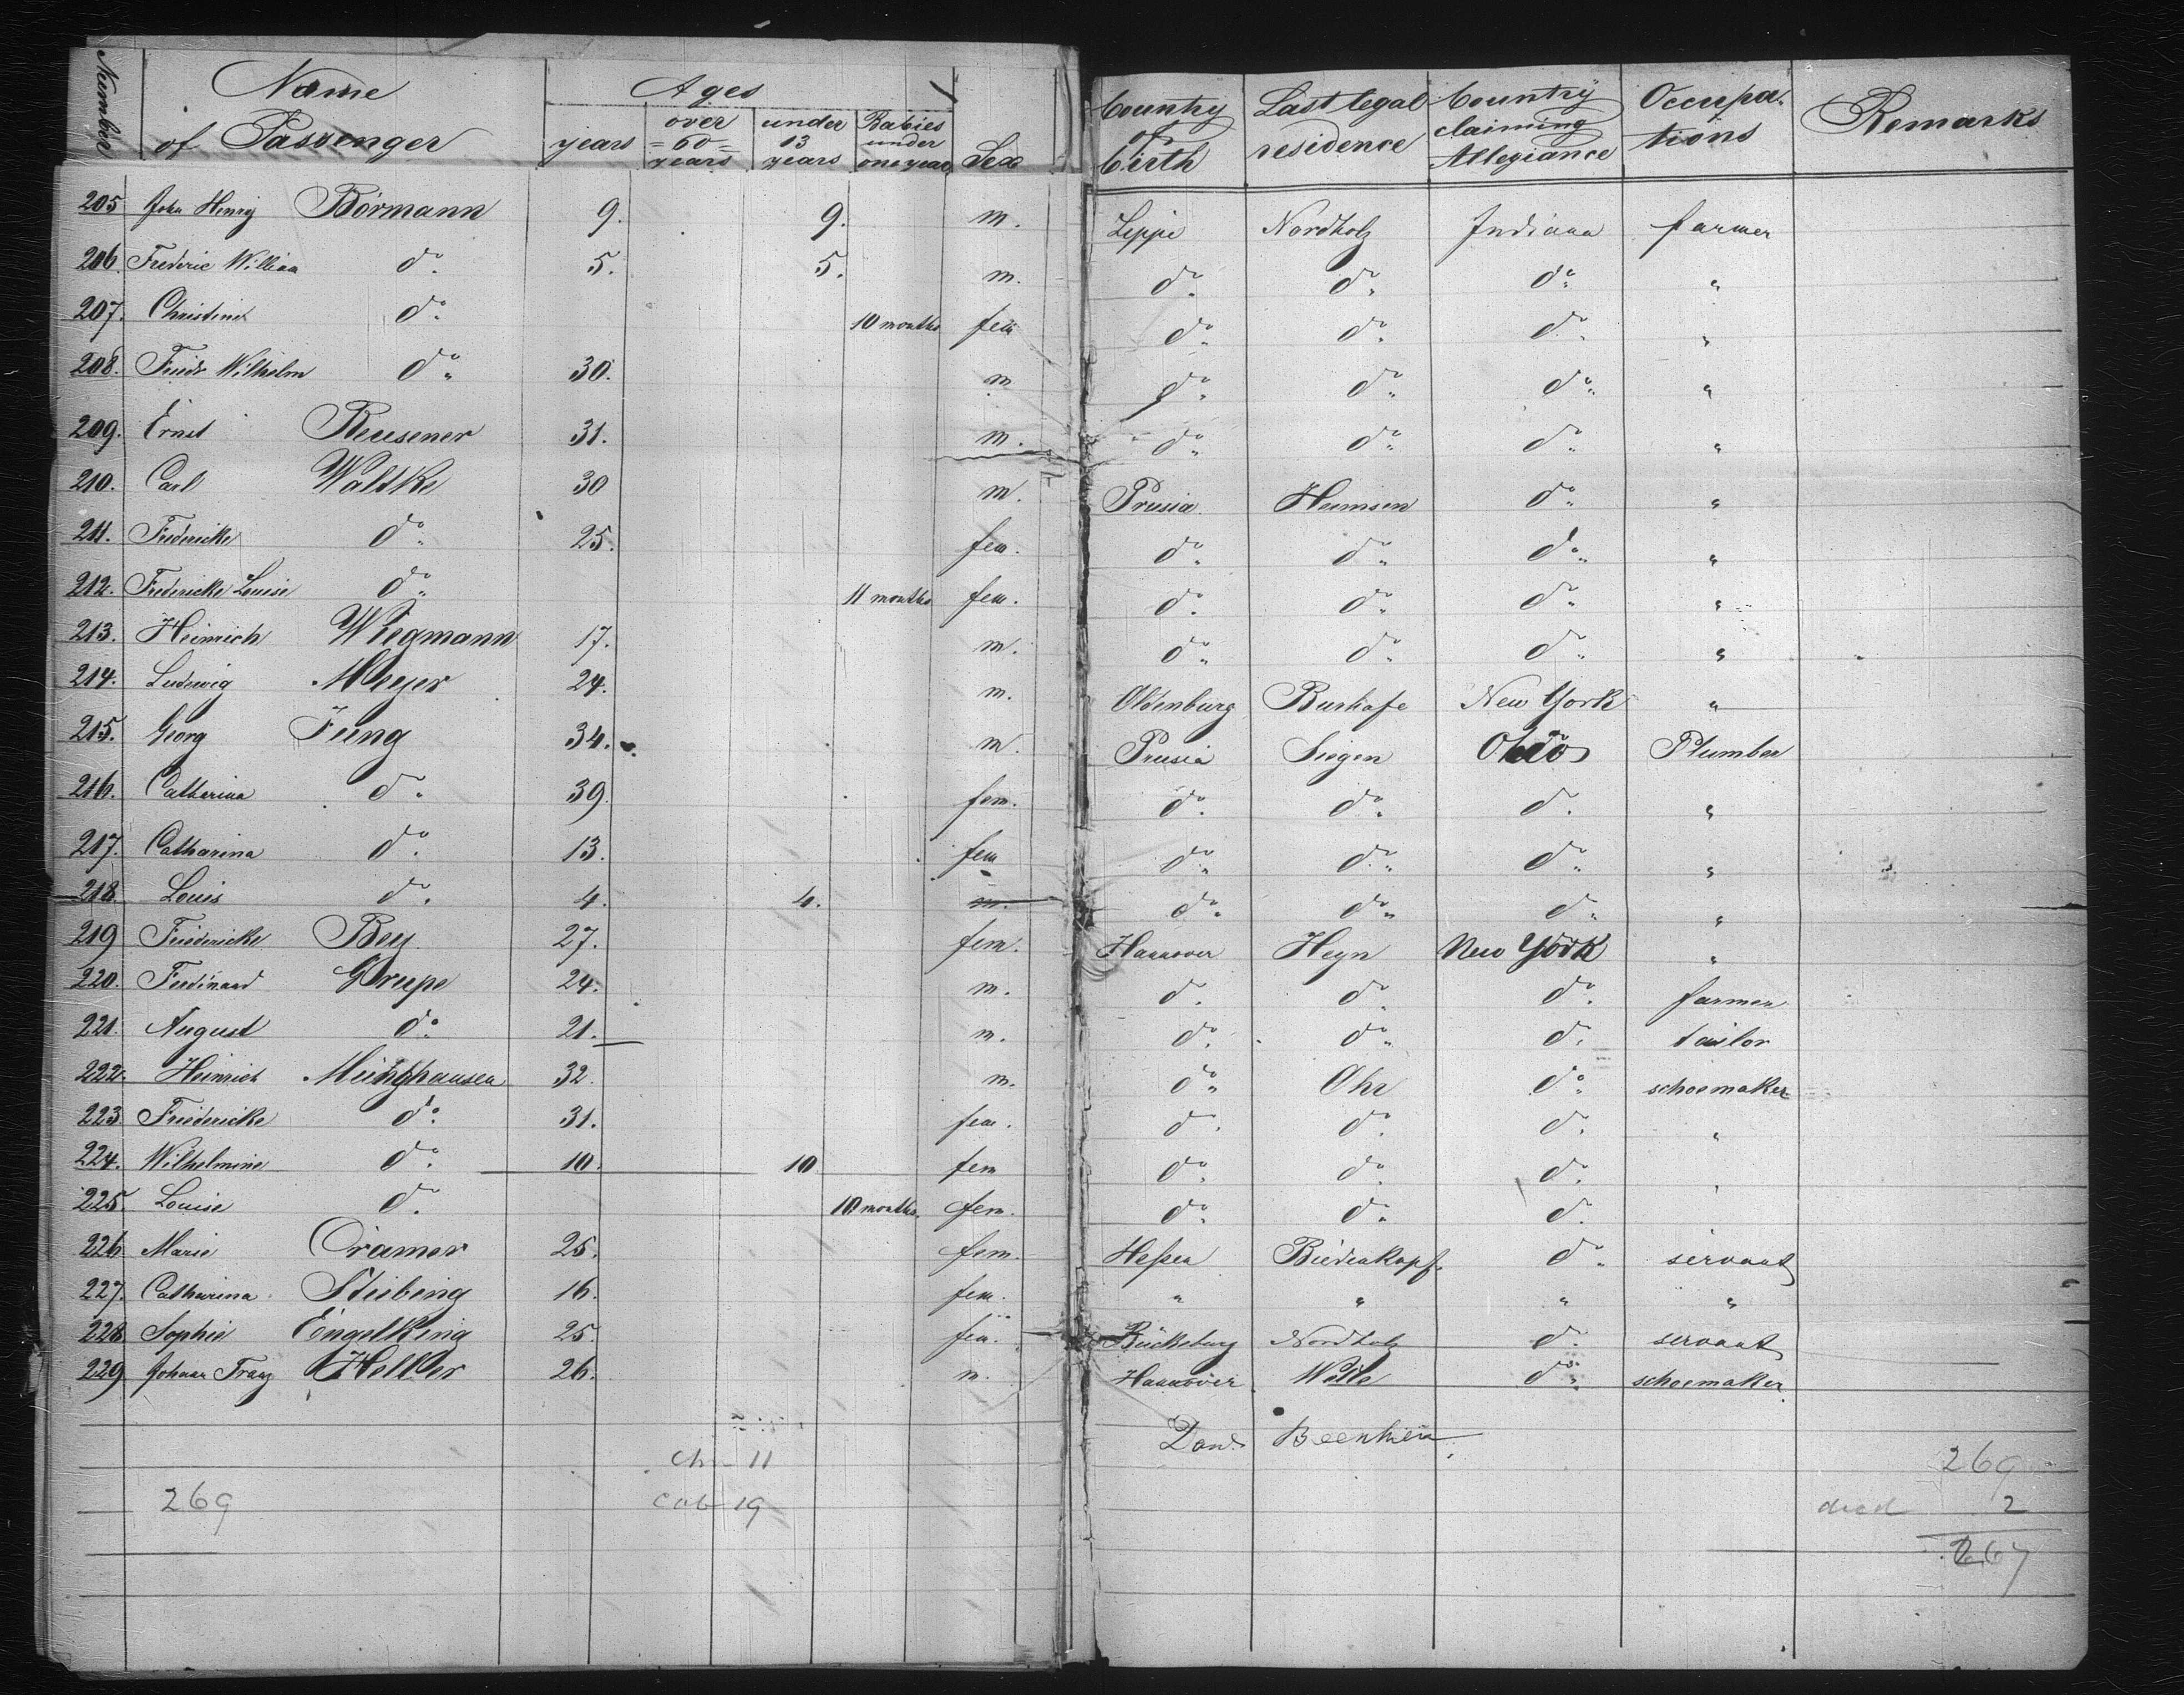 Number Name of Passenger Ages years over =60= years under 13 years Babies under one year Sex Country of birth Last legal residence Country claiming Allegiance Occupations Remarks
205 John Henry Börmann 9. 9. m. Lippe Nordholz Indiana farmer
206. Frederic William do. 5. 5. m. do. do. do. "
207. Christine do. 10 months fem do. do. do. "
208. Friedr Wilhelm do. 30. m do. do. do. "
209. Ernst Reusener 31. m. do. do. do. "
210. Carl Waltke 30 m. Prusia Heimsen do. "
211. Fredericke do. 25. fem. do. do. do. "
212. Fredericke Louise do. 11 months fem. do. do. do. "
213. Heinrich Wiegmann 17. m. do. do. do. "
214. Ludewig Meyer 24. m. Oldenburg Burhafe New York "
215. Georg Jung 34. m. Prusia Siegen Ohio Plumber
216. Catharina do. 39. fem. do. do. do. "
217. Catharina do. 13. fem do. do. do. "
218. Louis do. 4. 4. m. do. do. do. "
219 Friedericke Bey 27. fem. Hannover Heyn New York "
220. Ferdinand Grupe 24. m. do. do. do. farmer
221. August do. 21. m. do. do. do. tailor
222. Heinrich Münghausen 32. m. do. Ohr do. schoemaker
223. Friedericke do. 31. fem. do. do. do. "
224. Wilhelmine do. 10. 10 fem do. do. do. "
225. Louise do. 10 months. fem. do. do. do. "
226 Marie Cramer 25. fem. Hessen Biedenkopf. do. servant
227. Catharina Stiebing 16. fem. " " " "
228 Sophie Engelking 25. fem. Bückeburg Nordholz do. servant
229 Johann Franz Heller 26. m. Hannover do. schoemaker
ch - 11
269
269 cab 19
died 2
267